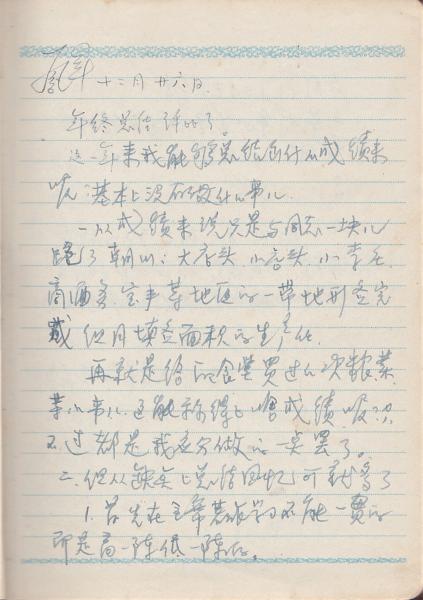 十二月廿六日.
年终总结 评比了。
这一年来我能够总结出什么成绩来
呢:基本上没有做什么事儿
一.从成绩来说只是与同志一块儿
跑了朝山:大店头.小店头.小李庄.
商酒务.宝丰等地区的一带地形查完
成 但用填查面积的生产任
再就是给 食堂买过几次粮菜.
等小事儿.这能称得上啥成绩呢??.
不过都是我应分做的一点罢了。
二.但从缺点上总结回忆可就多了
1.首先在 学习不能一贯的
即是高一阵低一阵的。